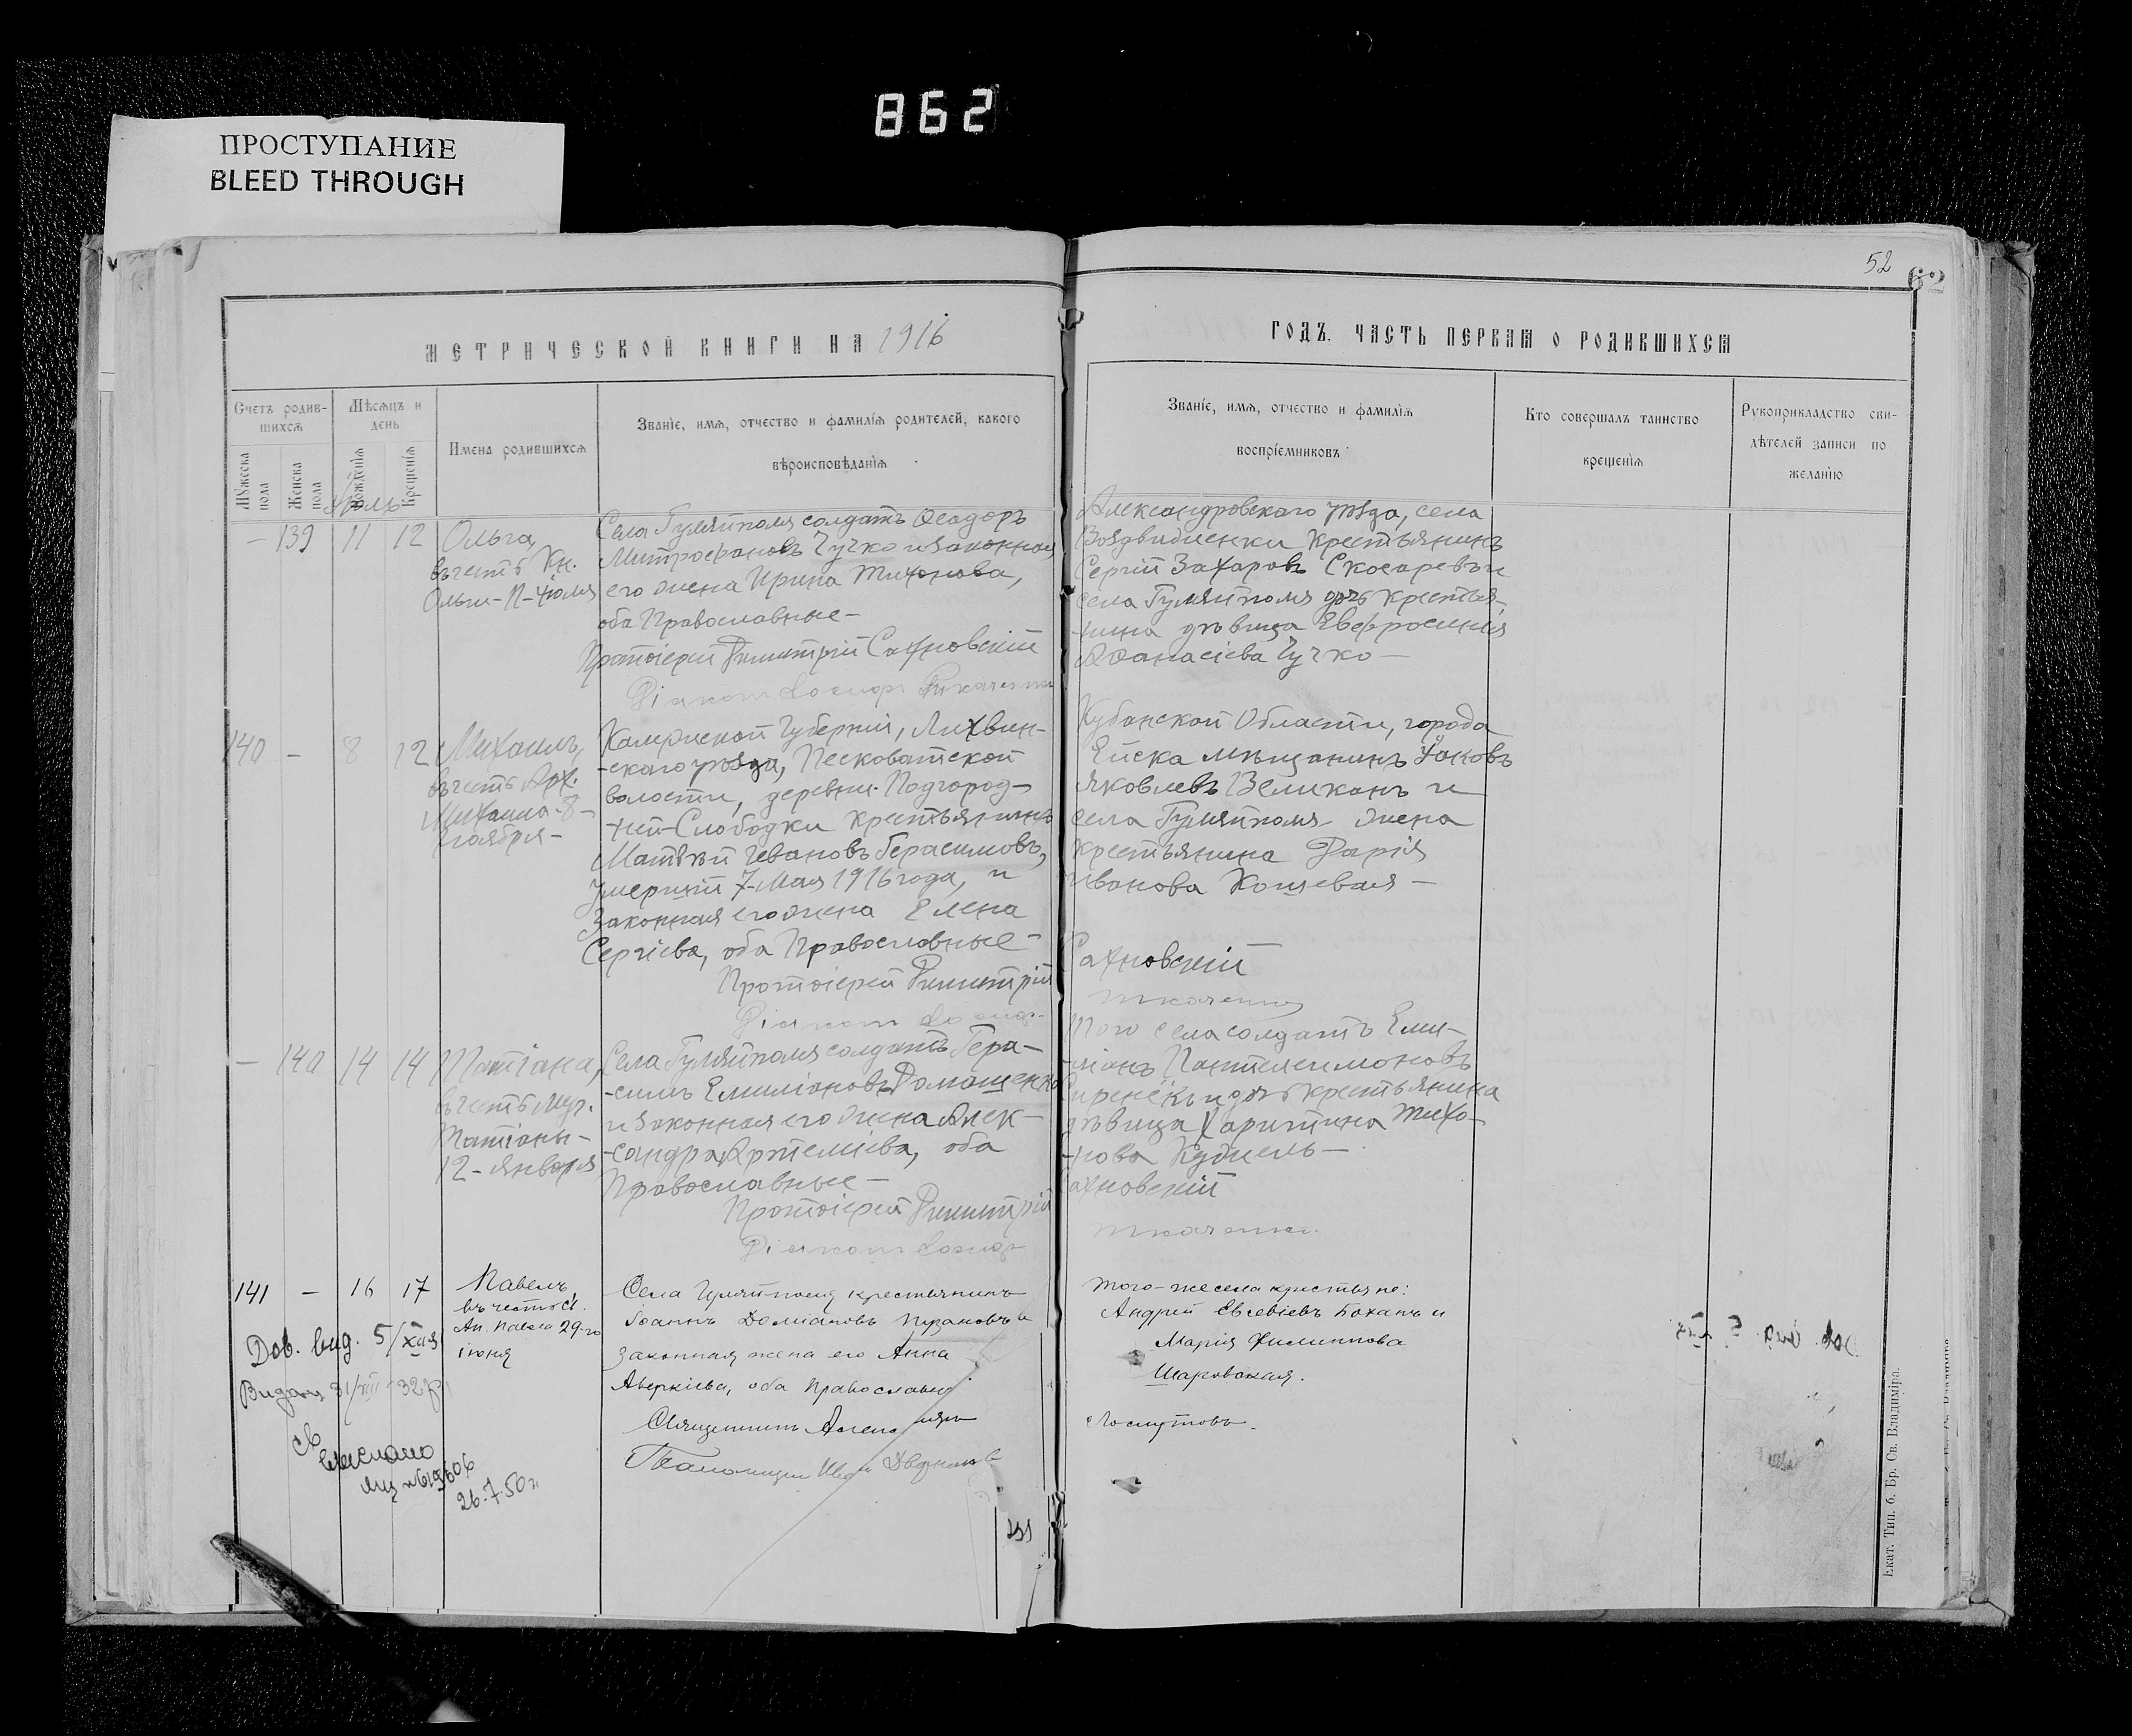 862
ПРОСТУПАНИЕ
BLEED THROUGH
52
62
МЕТРИЧЕСКОЙ КНИГИ НА 1916
ГОДЪ. ЧАСТЬ ПЕРВАЯ О РОДИВШИХСЯ
Счетъ родив-
шихся
Мѣсяцъ и
день
Мужеска
пола
Женска
пола
Рожденія
Крещенія
Имена родившихся
Званіе, имя, отчество и фамилія родителей, какого
вѣроисповѣданія
Званіе, имя, отчество и фамилія
воспріемниковъ
Кто совершалъ таинство
крещенія
Рукоприкладство сви-
дѣтелей записи по
желанію
Іюль
— 139 11 12
Ольга,
въ честь Кн.
Ольги-11-Іюля
Села Гуляйполя солдатъ Ѳеодоръ
Митрофановъ Чучко и законная
его жена Ирина Тихонова,
оба Православные —
Протоіерей Димитрій Сахновскій
Діаконъ Іосифъ Ткаченко
Александровскаго уѣзда, села
Воздвиженки крестьянинъ
Сергій Захаровъ Скосаревъ и
села Гуляйполя дочь крестья-
нина дѣвица Евфросинія
Аѳанасіева Чучко —
140 — 8 12
Михаилъ,
въ честь Арх.
Михаила-8-
ноября —
Калужской Губерніи, Лихвин-
-скаго уѣзда, Песковатской
волости, деревни Подгород-
-ней-Слободки крестьянинъ
Матѳей Ивановъ Герасимовъ,
умершій 7-Мая 1916 года, и
законная его жена Елена
Сергіева, оба Православные —
Протоіерей Димитрій
Діаконъ Іосифъ
Кубанской Области, города
Ейска мѣщанинъ Іаковъ
Яковлевъ Великанъ и
села Гуляйполя жена
крестьянина Дарія
Иванова Кощевая —
Сахновскій
Ткаченко
— 140 14 14
Татіана,
въ честь муч.
Татіаны —
12-Января
Села Гуляйполя солдатъ Гера-
-симъ Емиліановъ Домашенко
и законная его жена Алек-
-сандра Артеміева, оба
Православные —
Протоіерей Димитрій
Діаконъ Іосифъ
Того села солдатъ Еми-
-ліанъ Пантелеимоновъ
и дочь крестьянина
дѣвица Харитина Тихо-
-нова Кудмель —
Сахновскій
Ткаченко.
141 — 16 17
Павелъ,
въ честь св.
Ап. Павла 29-го
іюня
Села Гуляй-поля крестьянинъ
Іоаннъ Доміановъ Пузановъ и
законная жена его Анна
Аверкіева, оба Православные
Священникъ
Псаломщикъ
того-же села крестьяне:
Андрей Евсевіевъ Боханъ и
Марія Филиппова
Шаровская.
Лоскутовъ.
Дов. вид. 5/XII
26.7.50
Екат. Тип. б. Бр. Св. Владиміра.